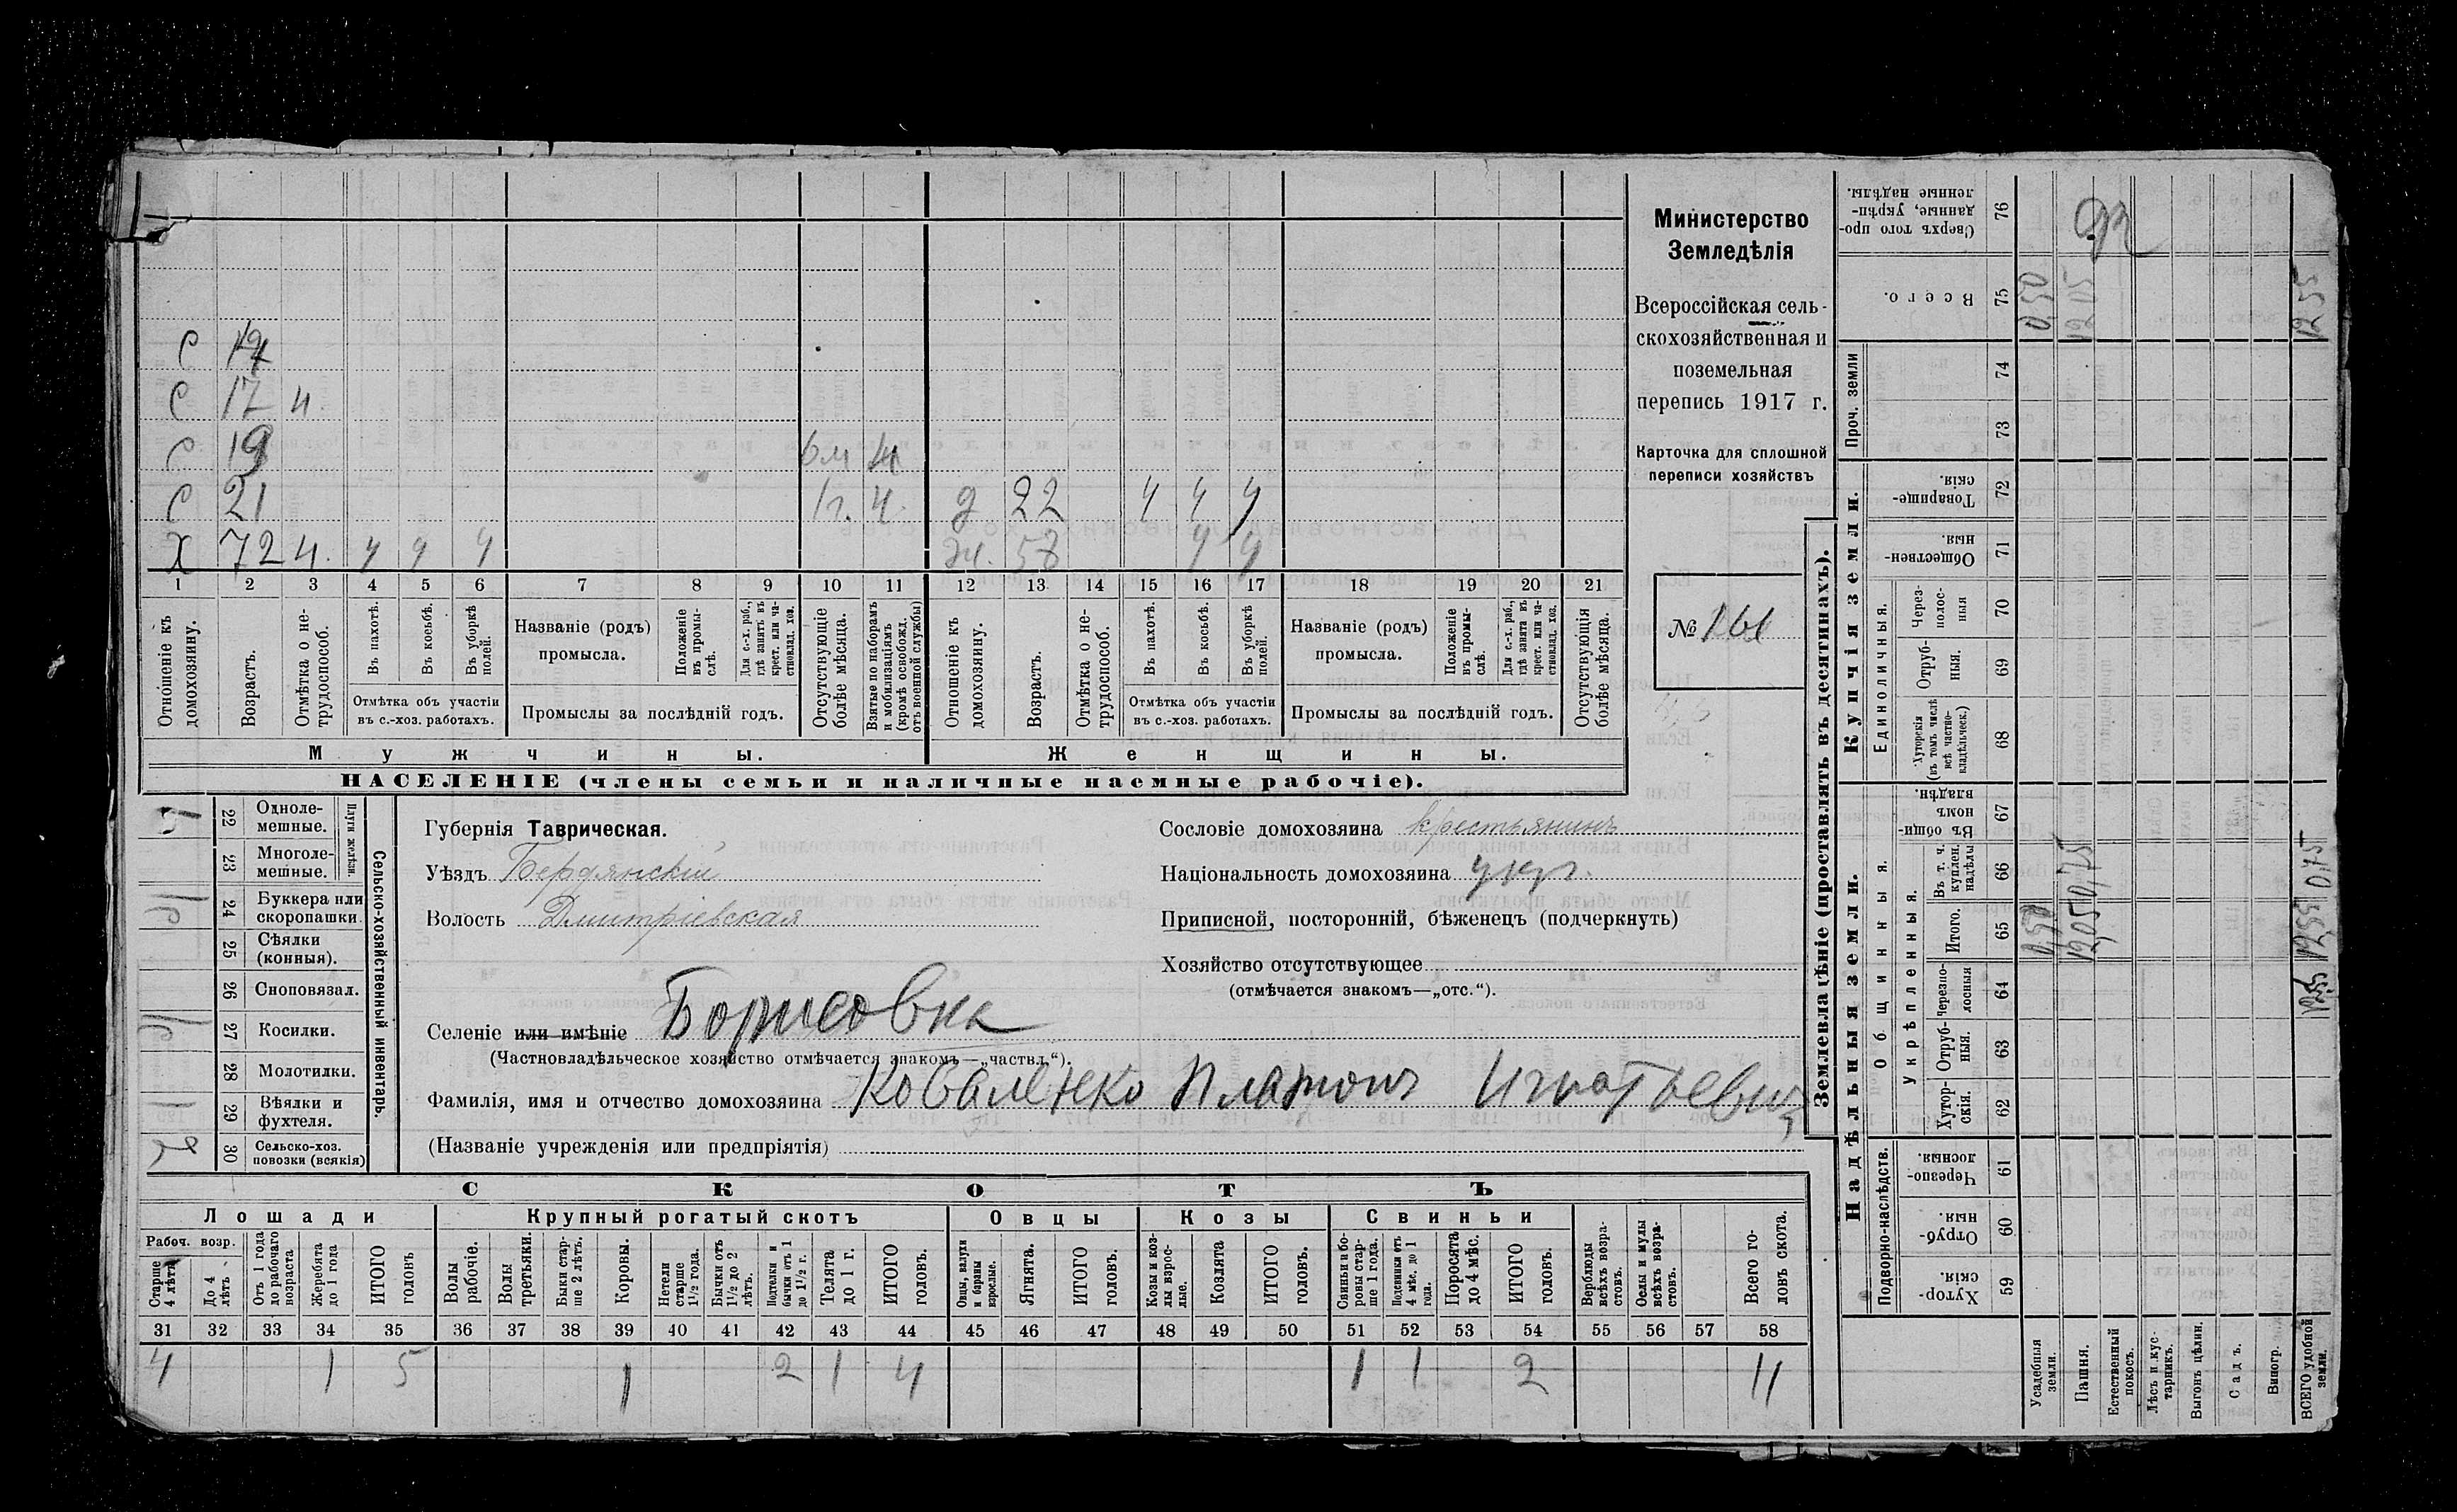 Министерство
Земледѣлія
Всероссійская сель-
скохозяйственная и
поземельная
перепись 1917 г.
Карточка для сплошной
переписи хозяйствъ
№ 161
С
С 17 н.
С 19
С 21 1 г. ч. д 22 ч ч ч
Х 72 н. ч ч ч ж. 58 ч ч
1 2 3 4 5 6 7 8 9 10 11 12 13 14 15 16 17 18 19 20 21
Отношеніе къ домохозяину.
Возрастъ.
Отмѣтка о не-трудоспособ.
Въ пахотѣ.
Въ косьбѣ.
Въ уборкѣ полей.
Отмѣтка объ участіи
въ с.-хоз. работахъ.
Названіе (родъ)
промысла.
Положеніе въ промы-слѣ.
Для с.-х. раб., гдѣ занятъ въ крест. или ча-стновлад. хоз.
Промыслы за послѣдній годъ.
Отсутствующіе болѣе мѣсяца.
Взятые по наборамъ и мобилизаціямъ (кромѣ освобожд. отъ военной службы)
Отношеніе къ домохозяину.
Возрастъ.
Отмѣтка о не-трудоспособ.
Въ пахотѣ.
Въ косьбѣ.
Въ уборкѣ полей.
Отмѣтка объ участіи
въ с.-хоз. работахъ.
Названіе (родъ)
промысла.
Положеніе въ промы-слѣ.
Для с.-х. раб., гдѣ занята въ крест. или ча-стновлад. хоз.
Промыслы за послѣдній годъ.
Отсутствующія болѣе мѣсяца.
Мужчины.
Женщины.
НАСЕЛЕНІЕ (члены семьи и наличные наемные рабочіе).
Сельско-хозяйственный инвентарь.
Плуги желѣзн.
22 Одноле-мешные.
23 Многоле-мешные.
24 Буккера или скоропашки.
25 Сѣялки (конныя).
26 Сноповязал.
27 Косилки.
28 Молотилки.
1 29 Вѣялки и фухтеля.
2 30 Сельско-хоз. повозки (всякія)
Губернія Таврическая.
Уѣздъ Бердянскій
Волость Дмитріевская
Селеніе или имѣніе Борисовка
(Частновладѣльческое хозяйство отмѣчается знакомъ—„частвл.“).
Фамилія, имя и отчество домохозяина Коваленко Платонъ Игнатьевич
(Названіе учрежденія или предпріятія)
Сословіе домохозяина крестьянинъ
Національность домохозяина укр.
Приписной, посторонній, бѣженецъ (подчеркнуть)
Хозяйство отсутствующее
(отмѣчается знакомъ—„отс.“).
СКОТЪ
Лошади
Крупный рогатый скотъ
Овцы
Козы
Свиньи
Рабоч. возр.
Старше 4 лѣтъ
До 4 лѣтъ
Отъ 1 года до рабочаго возраста
Жеребята до 1 года
ИТОГО головъ
Волы рабочіе.
Волы третьяки.
Быки стар-ше 2 лѣтъ.
Коровы.
Нетели старше 1½ года.
Бычки отъ 1½ до 2 лѣтъ.
Подтелки и бычки отъ 1 до 1½ г.
Телята до 1 г.
ИТОГО головъ.
Овцы, валухи и бараны взрослые.
Ягнята.
ИТОГО головъ.
Козы и коз-лы взрос-лые.
Козлята
ИТОГО головъ.
Свиньи и бо-ровы стар-ше 1 года.
Подсвинки отъ 4 мѣс. до 1 года.
Поросята до 4 мѣс.
ИТОГО головъ.
Верблюды всѣхъ возра-стовъ.
Ослы и мулы всѣхъ возра-стовъ.
Всего го-ловъ скота.
31 32 33 34 35 36 37 38 39 40 41 42 43 44 45 46 47 48 49 50 51 52 53 54 55 56 57 58
4 1 5 1 2 1 4 1 1 2 11
Землевладѣніе (проставлять въ десятинахъ).
Надѣльныя земли.
Купчія земли.
Проч. земли
Подворно-наслѣдств.
Общинныя.
Укрѣпленныя.
Единоличныя.
59 Хутор-скія.
60 Отруб-ныя.
61 Черезпо-лосныя.
62 Хутор-скія.
63 Отруб-ныя.
64 Черезпо-лосныя
65 Итого.
66 Въ т. ч. куплен. надѣлы
67 Въ общи-номъ владѣн.
68 Хуторскія (въ томъ числѣ всѣ частно-владѣльческ.)
69 Отруб-ныя.
70 Через-полос-ныя
71 Обществен-ныя.
72 Товарище-скія.
73
74
75 Всего.
76 Сверхъ того про-данные, укрѣп-ленные надѣлы.
Усадебныя земли. 0,50 0,50
Пашня. 12,05 0,75 12 05
Естественный покосъ.
Лѣсъ и кус-тарникъ.
Выгонъ цѣлин.
Садъ.
Виногр.
ВСЕГО удобной земли. 12,55 0,75 12 55